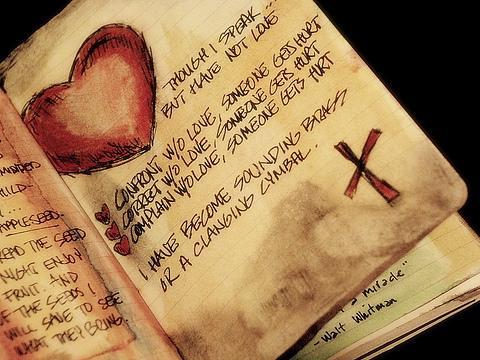 THOUGH I SPEAK...
BUT HAVE NOT LOVE
CONFRONT W/O LOVE, SOMEONE GETS HURT
CORRECT W/O LOVE, SOMEONE GETS HURT
COMPLAIN W/O LOVE, SOMEONE GETS HURT
I HAVE BECOME SOUNDING BRASS
OR A CLANGING CYMBAL.
X
APPLESEED
THE SEED
NIGHT ENJOY
FRUIT. AND
OF THE SEEDS I
WILL SAVE TO SEE
WHAT THEY BRING.
a miracle"
- Walt Whitman